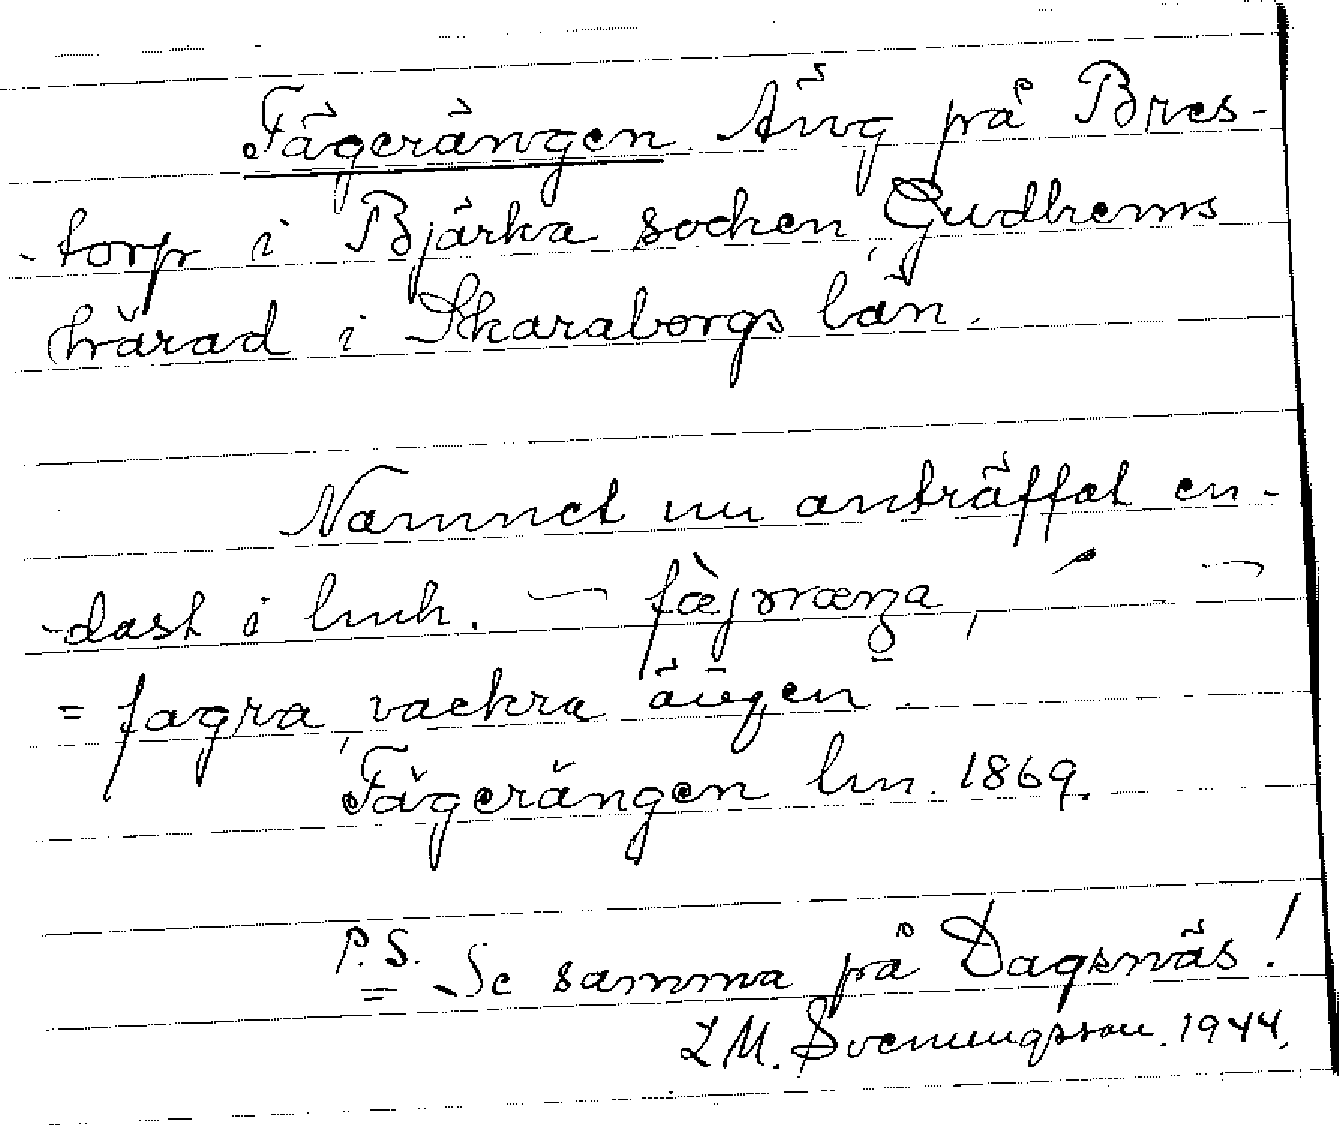 Fägerängen Äng på Bres-
-torp i Bjärka socken, Gudhems
härad i Skaraborgs län.
Namnet nu anträffat en-
-dast i luk. — fæ̀jrræŋa, ´ —
= fagra, vackra ängen
Fägerängen lm. 1869.
P.S. Se samma på Dagsnäs!
L M. Svenungsson. 1944.